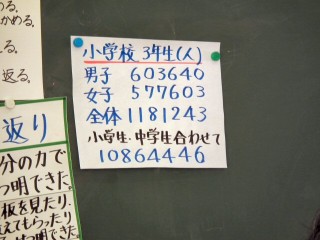 める。
かめる。
える。
返る。
小学校 3年生(人)
男子 603640
女子 577603
全体 1181243
小学生・中学生合わせて
10864446
返り
分の力で
つ明できた。
板を見たり、
えてもらったり